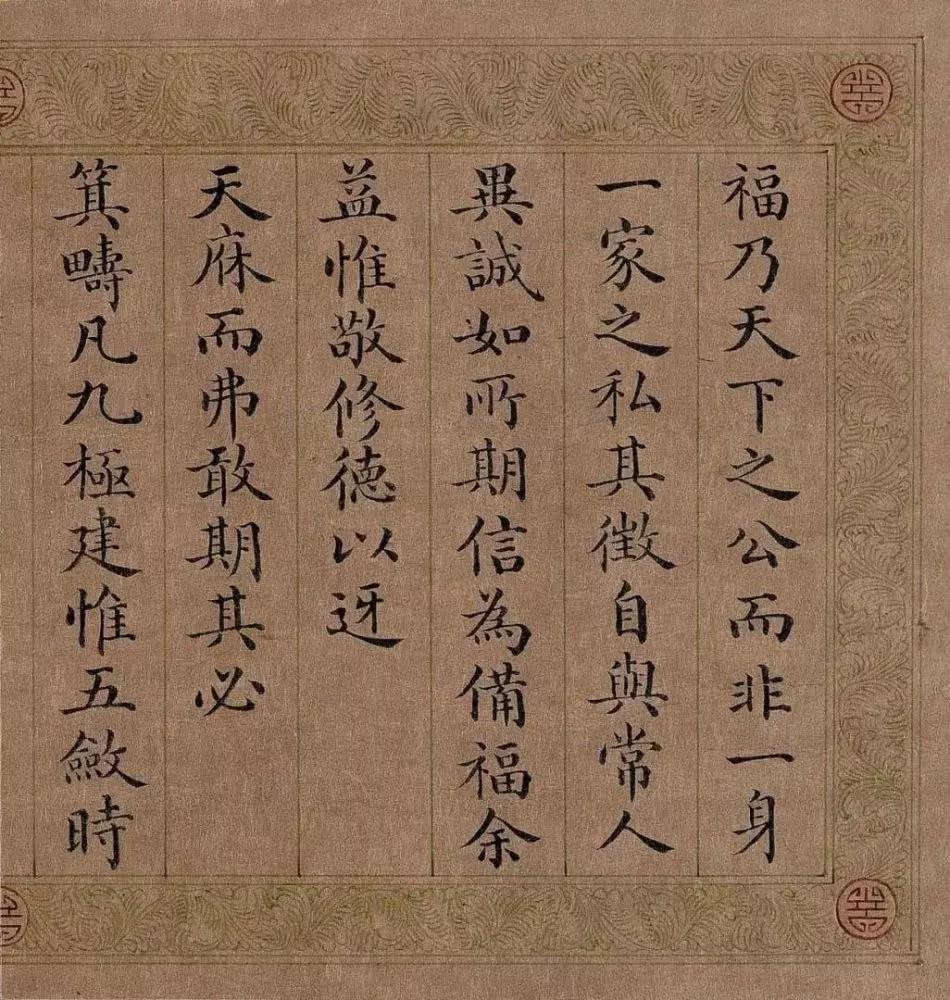 福乃天下之公而非一身
一家之私其徵自與常人
異誠如所期信為備福余
益惟敬修德以迓
天庥而弗敢期其必
箕疇凡九極建惟五斂時